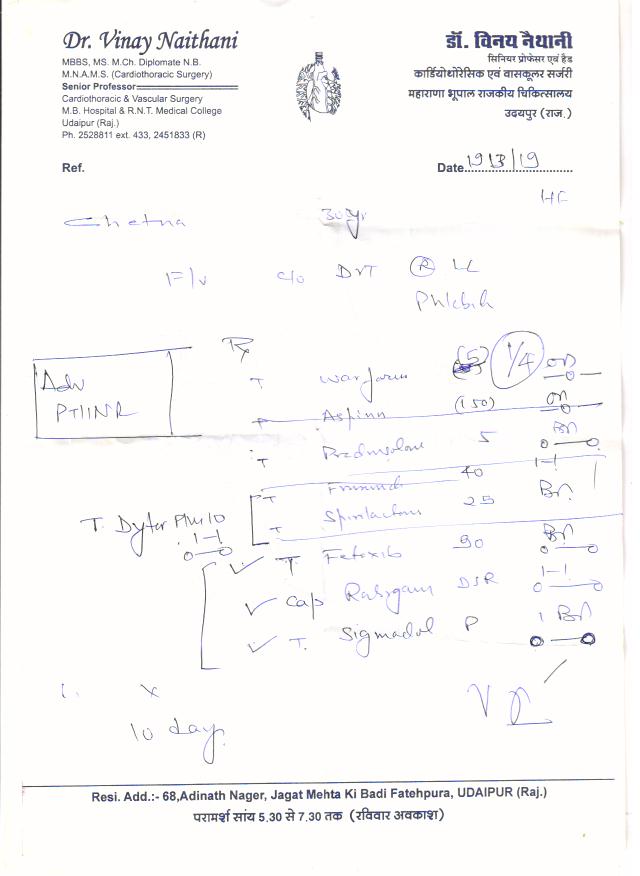 Dr. Vinay Naithani
MBBS, MS. M.Ch. Diplomate N.B.
M.N.A.M.S. (Cardiothoracic Surgery)
Senior Professor
Cardiothoracic & Vascular Surgery
M.B. Hospital & R.N.T. Medical College
Udaipur (Raj.)
Ph. 2528811 ext. 433, 2451833 (R)
डॉ. विनय नैथानी
सिनियर प्रोफेसर एवं हैड
कार्डियोथोरेसिक एवं वासकूलर सर्जरी
महाराणा भूपाल राजकीय चिकित्सालय
उदयपुर (राज.)
Ref.
Date 19/3/19
Chetna 30 yr
F/v c/o DVT (R) LL
Rx
Adv
PT/INR
T Warfarin (5) 1/4 OD
T Aspirin (150) OD
T 5 BD
40 1-1
T 25 BD
T. Dytor Plus 10
1-1
T. Fetoxib 90 BD
Cap DSR 1-1
T. Sigmadol P 1 BD
x
10 day
Resi. Add.:- 68,Adinath Nager, Jagat Mehta Ki Badi Fatehpura, UDAIPUR (Raj.)
परामर्श सांय 5.30 से 7.30 तक (रविवार अवकाश)